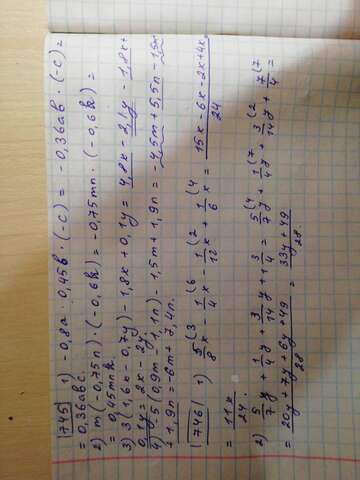 745 1) -0,8a · 0,45b · (-c) = -0,36ab · (-c) =
= 0,36abc.
2) m(-0,75n) · (-0,6k) = -0,75mn · (-0,6k) =
= 0,45mnk
3) 3(1,6x - 0,7y) - 1,8x + 0,1y = 4,8x - 2,1y - 1,8x +
0,1y = 3x - 2y
4) -5(0,9m - 1,1n) - 1,5m + 1,9n = -4,5m + 5,5n - 1,5m
+ 1,9n = -6m + 7,4n.
746 1) 5/8 (3 x - 1/4 (6 x - 1/12 (2 x + 1/6 (4 x = 15x - 6x - 2x + 4x / 24
= 11x / 24.
2) 5/7 y + 1/4 y + 3/14 y + 1 3/4 = 5/7 (4 y + 1/4 (7 y + 3/14 (2 y + 7/4 (7 =
= 20y + 7y + 6y + 49 / 28 = 33y + 49 / 28